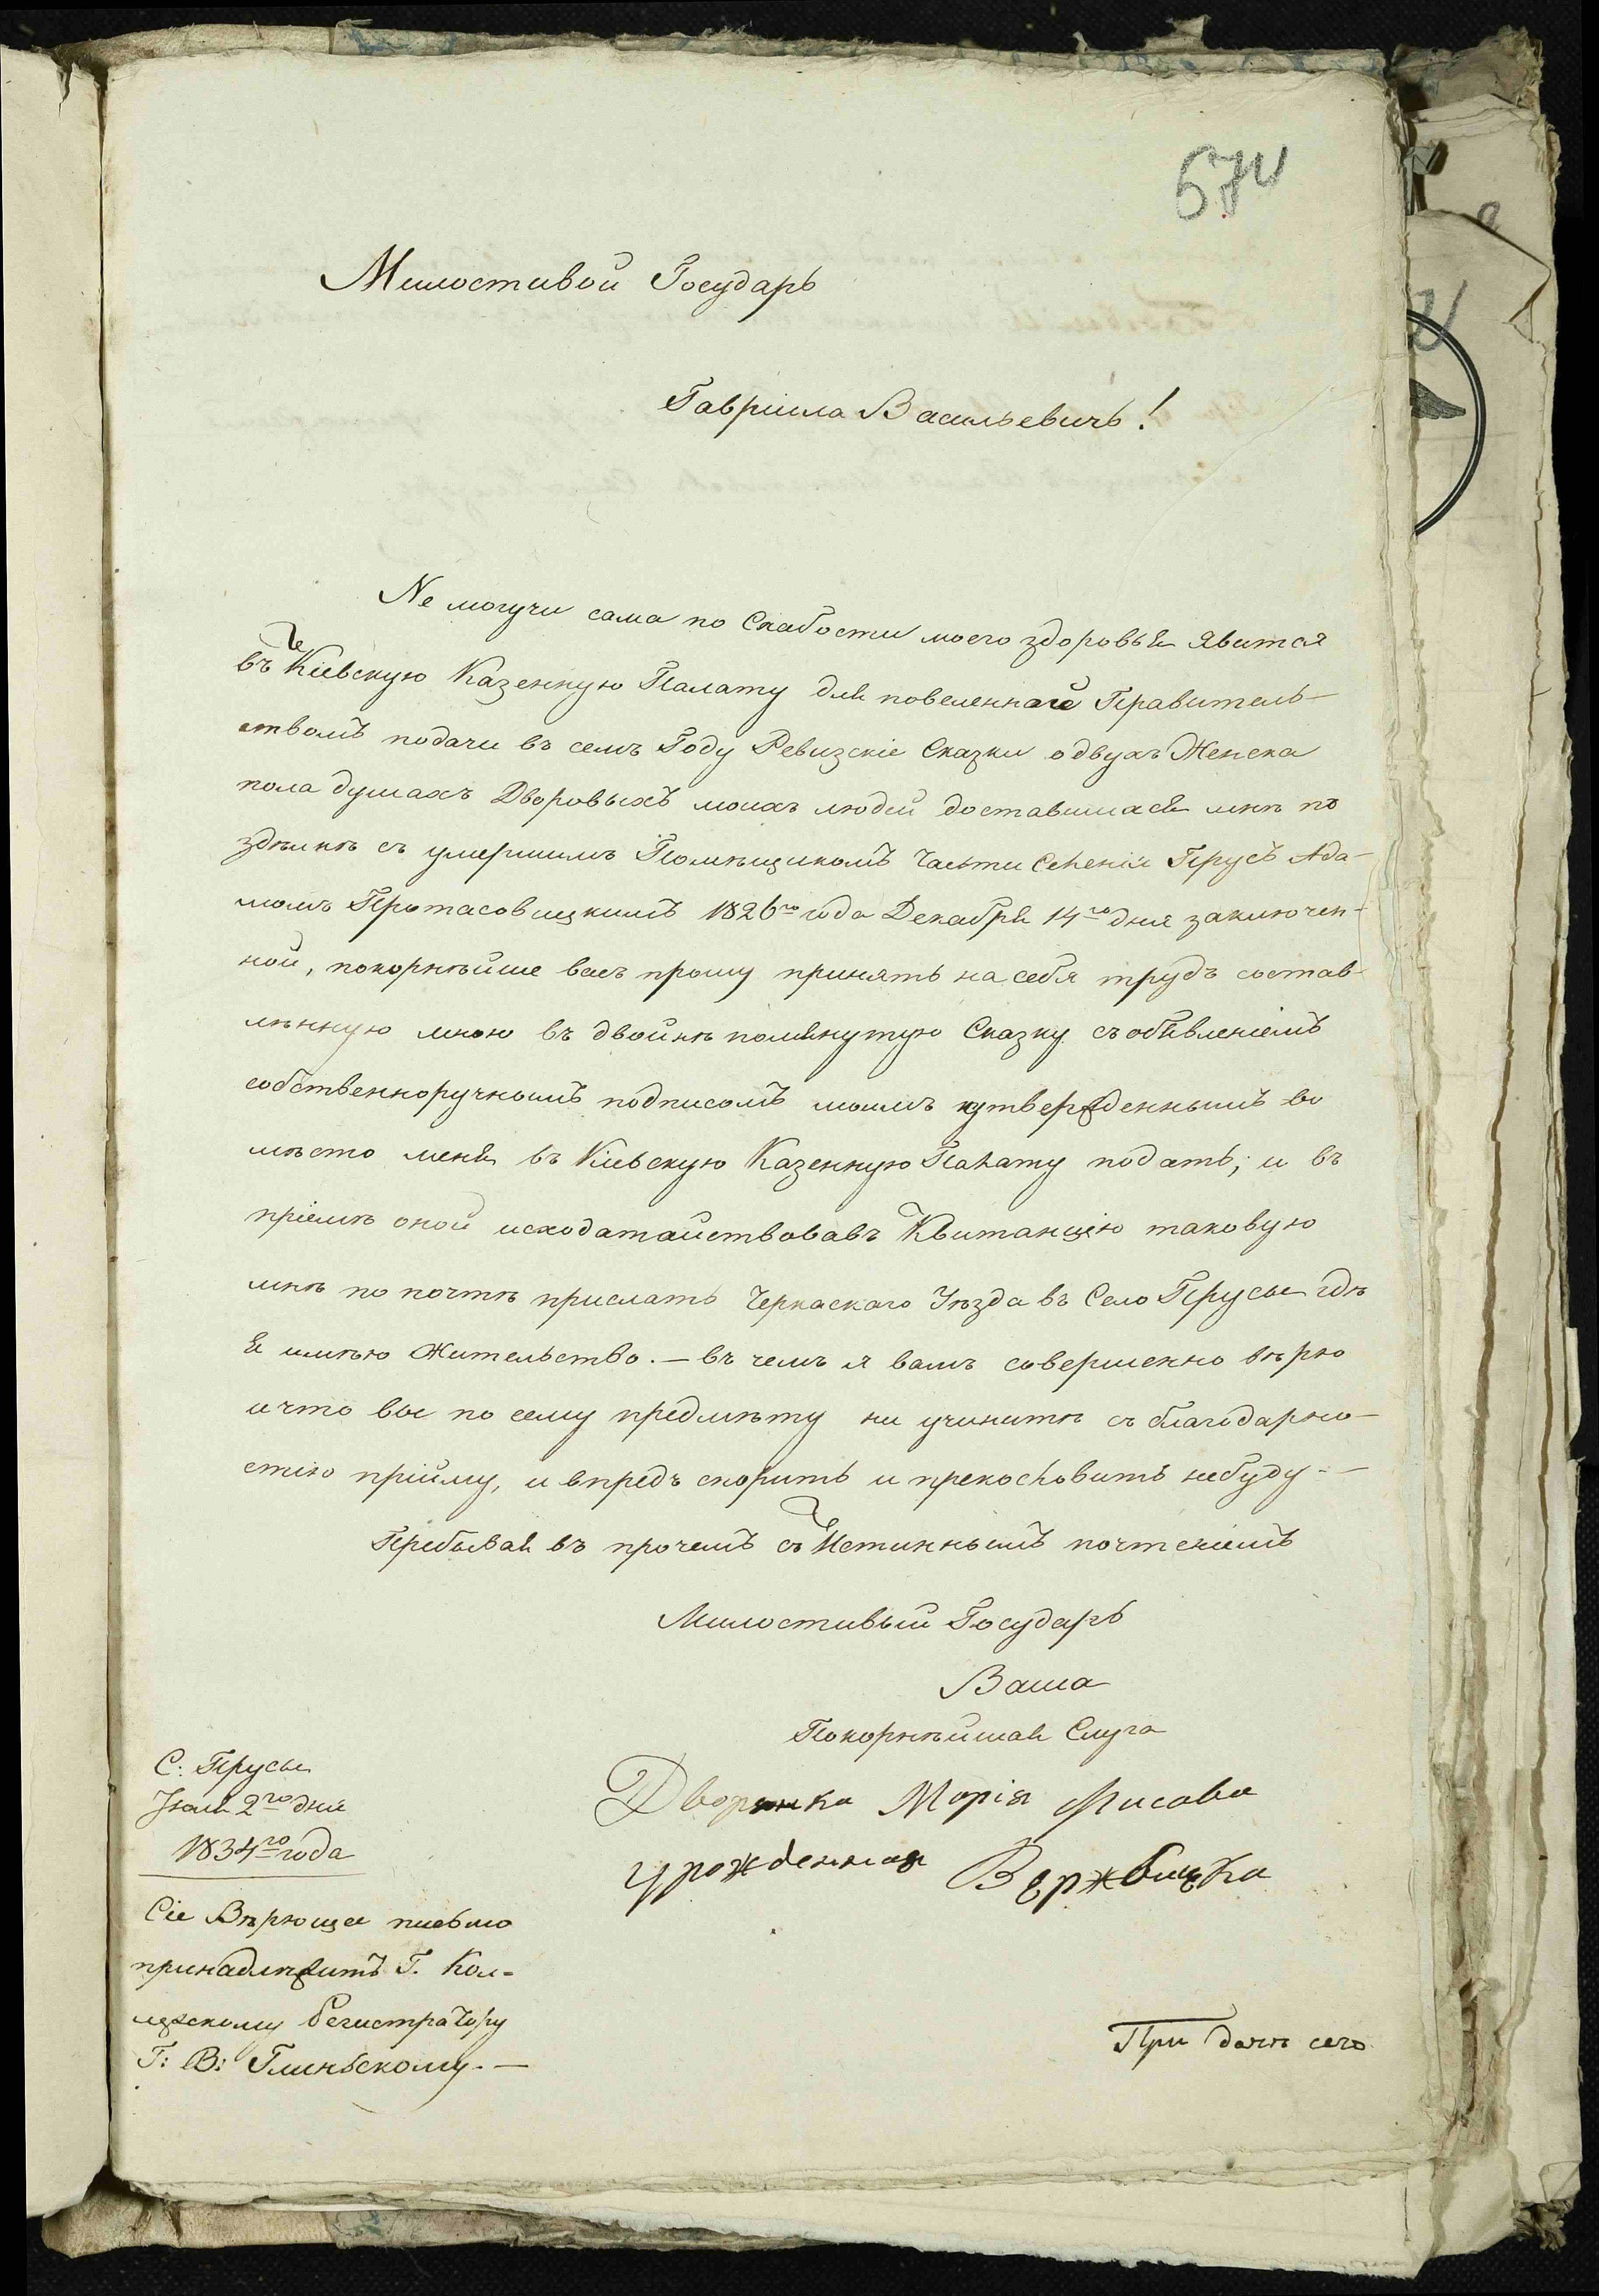 674
Милостивой Государь
Гавріила Васильевичъ!
Не могучи сама по Слабости моего здоровья явится
въ Кіевскую Казенную Палату для повеленнаго Правитель-
ствомъ подачи въ семъ Году Ревизскіе Сказки о двухъ Женска
пола душахъ Дворовыхъ моихъ людей доставшихся мнѣ по
здѣлкѣ съ умершимъ Помѣщикомъ Части Селенія Прусъ Ада-
момъ Протасовицкимъ 1826го года Декабря 14го дня заключен-
ной, покорнѣйше васъ прошу принять на себя трудъ состав-
лѣнную мною въ двойнѣ помянутую Сказку съ обявленіемъ
собственноручнымъ подписомъ моимъ утвержденнымъ во
мѣсто меня въ Кіевскую Казенную Палату подать; и въ
пріемѣ оной исходатайствовавъ Квитанцію таковую
мнѣ по почтѣ прислать Черкаскаго Уѣзда въ Село Прусы гдѣ
Я имѣю Жительство. — въ чемъ я вамъ совершенно вѣрю
и что вы по сему предмѣту ни учинитѣ съ благодарно-
стію прійму, и впредъ спорить и прекословить небуду. —
Пребывая въ прочемъ съ Истиннымъ почтеніемъ
Милостивый Государь
Ваша
Покорнѣйшая Слуга
Дворянка Марія Лисова
урожденная Вержбицка
С: Прусы
Іюля 2го дня
1834го года
Сіе Вѣрющее письмо
принадлѣжитъ Г. Кол-
лѣжскому Регистратору
Г: В: Глинскому. —
При дачѣ сего